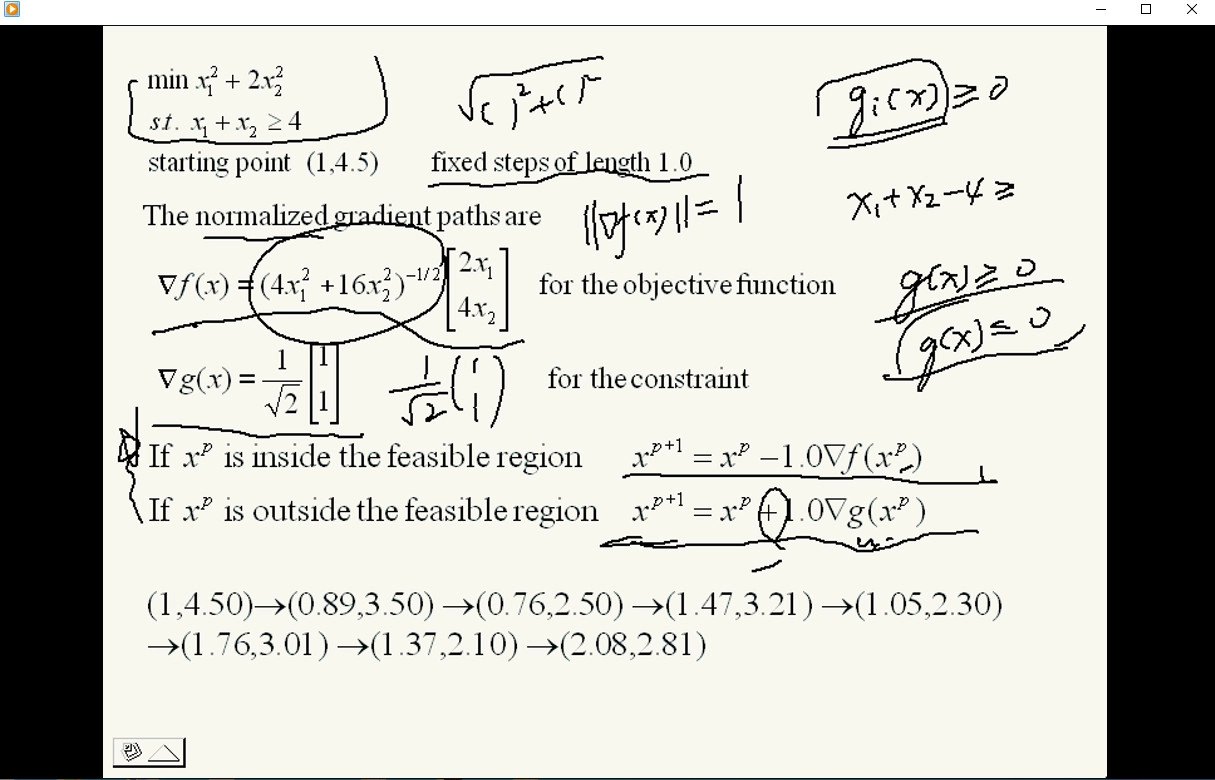 min x₁² + 2x₂²
st. x₁ + x₂ ≥ 4
√( )² + ( )²
gᵢ(x) ≥ 0
starting point (1,4.5) fixed steps of length 1.0
x₁ + x₂ − 4 ≥
The normalized gradient paths are ||∇f(x)|| = 1
∇f(x) = (4x₁² + 16x₂²)^(−1/2) [2x₁ 4x₂] for the objective function
g(x) ≥ 0
g(x) ≤ 0
∇g(x) = 1/√2 [1 1] 1/√2 (1 1) for the constraint
If xᵖ is inside the feasible region xᵖ⁺¹ = xᵖ − 1.0∇f(xᵖ)
If xᵖ is outside the feasible region xᵖ⁺¹ = xᵖ + 1.0∇g(xᵖ)
−
(1,4.50)→(0.89,3.50) →(0.76,2.50) →(1.47,3.21) →(1.05,2.30)
→(1.76,3.01) →(1.37,2.10) →(2.08,2.81)